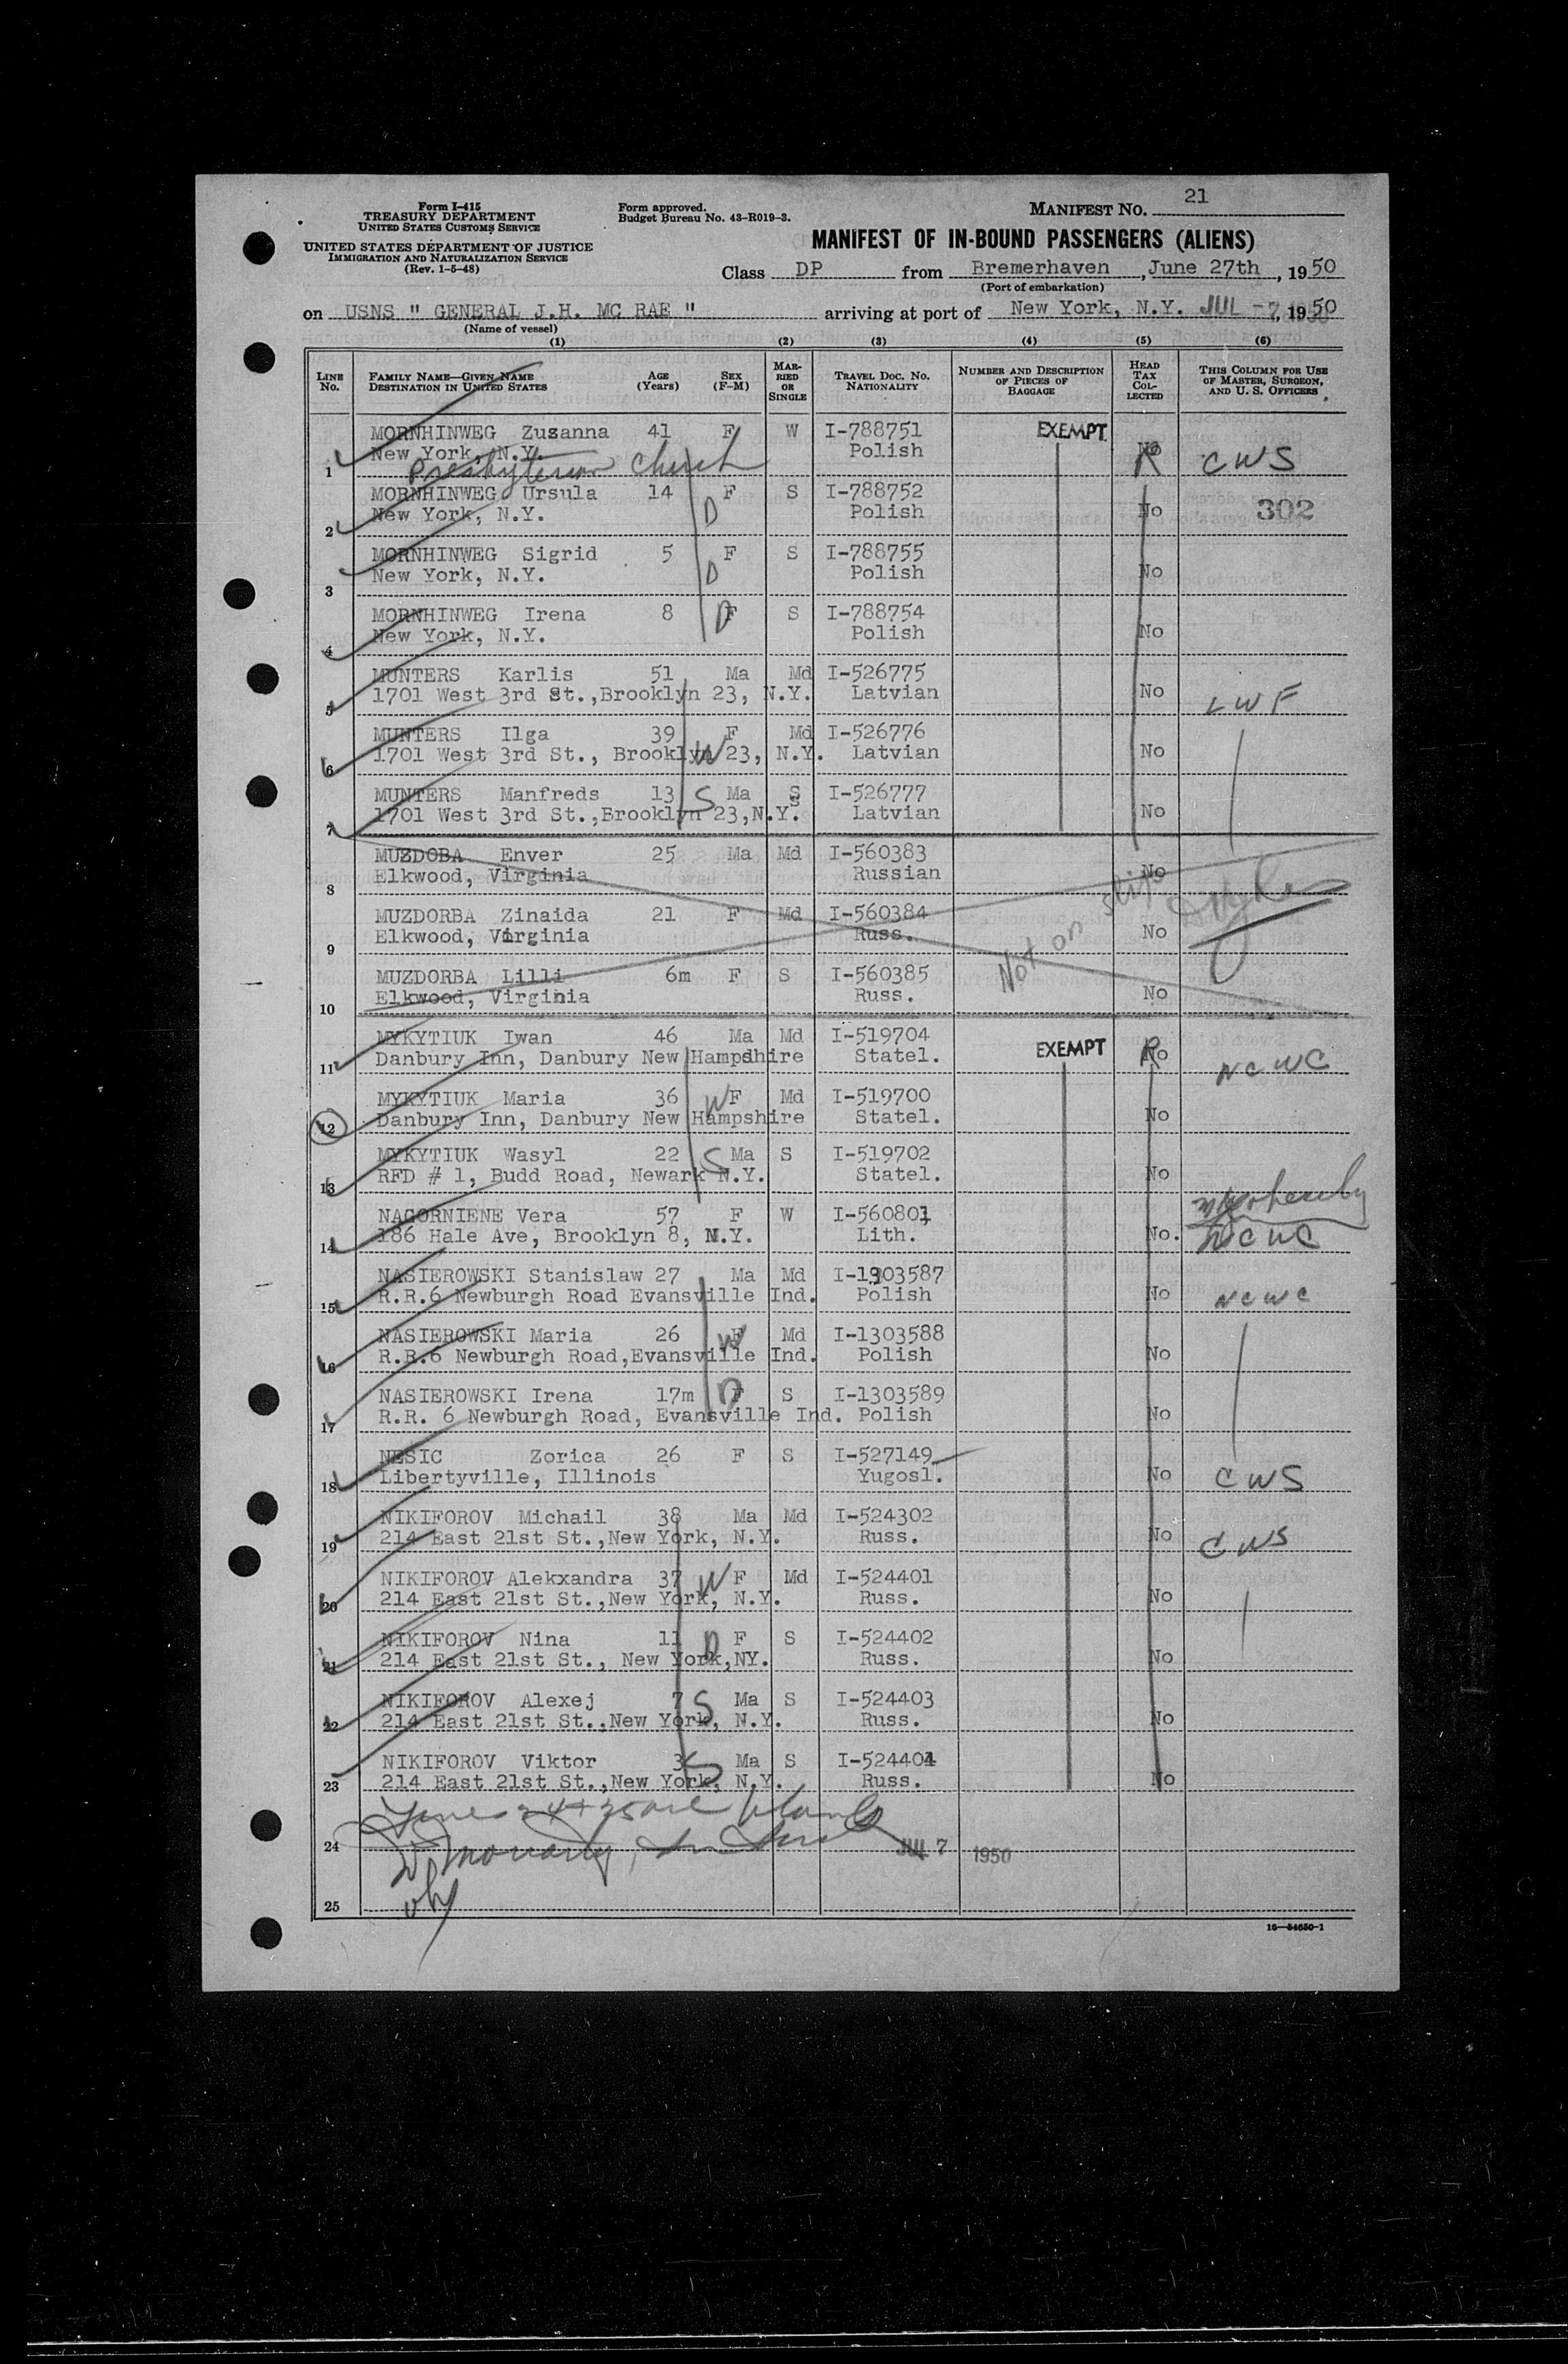 Form I-415
TREASURY DEPARTMENT
UNITED STATES CUSTOMS SERVICE
UNITED STATES DEPARTMENT OF JUSTICE
IMMIGRATION AND NATURALIZATION SERVICE
(Rev. 1-5-48)
Form approved.
Budget Bureau No. 43-R019-3.
MANIFEST NO. 21
MANIFEST OF IN-BOUND PASSENGERS (ALIENS)
Class DP from Bremerhaven, June 27th, 1950
(Port of embarkation)
on USNS " GENERAL J.H. MC RAE " arriving at port of New York, N.Y. JUL -7, 1950
(Name of vessel)
(1) (2) (3) (4) (5) (6)
LINE NO. FAMILY NAME—GIVEN NAME DESTINATION IN UNITED STATES AGE (Years) SEX (F-M) MARRIED OR SINGLE TRAVEL DOC. NO. NATIONALITY NUMBER AND DESCRIPTION OF PIECES OF BAGGAGE HEAD TAX COLLECTED THIS COLUMN FOR USE OF MASTER, SURGEON, AND U. S. OFFICERS
MORNHINWEG Zuzanna 41 F W I-788751 EXEMPT
1 New York, N.Y. Polish No CWS
Presbyterian Church
MORNHINWEG Ursula 14 F S I-788752
2 New York, N.Y. D Polish No 302
MORNHINWEG Sigrid 5 F S I-788755
3 New York, N.Y. D Polish No
MORNHINWEG Irena 8 F D S I-788754
4 New York, N.Y. Polish No
MUNTERS Karlis 51 Ma Md I-526775
5 1701 West 3rd St.,Brooklyn 23, N.Y. Latvian No LWF
MUNTERS Ilga 39 F Md I-526776
6 1701 West 3rd St., Brooklyn 23, N.Y. W Latvian No
MUNTERS Manfreds 13 S Ma S I-526777
7 1701 West 3rd St.,Brooklyn 23,N.Y. Latvian No
MUZDOBA Enver 25 Ma Md I-560383
8 Elkwood, Virginia Russian No
MUZDORBA Zinaida 21 F Md I-560384
9 Elkwood, Virginia Russ. Not on ship No
MUZDORBA Lilli 6m F S I-560385
10 Elkwood, Virginia Russ. No
MYKYTIUK Iwan 46 Ma Md I-519704 EXEMPT
11 Danbury Inn, Danbury New Hampshire Statel. No NCWC
MYKYTIUK Maria 36 W F Md I-519700
12 Danbury Inn, Danbury New Hampshire Statel. No
MYKYTIUK Wasyl 22 S Ma S I-519702
13 RFD # 1, Budd Road, Newark N.Y. Statel. No
NAGORNIENE Vera 57 F W I-560801
14 186 Hale Ave, Brooklyn 8, N.Y. Lith. No. NCWC
NASIEROWSKI Stanislaw 27 Ma Md I-1303587
15 R.R.6 Newburgh Road Evansville Ind. Polish No NCWC
NASIEROWSKI Maria 26 W F Md I-1303588
16 R.R.6 Newburgh Road,Evansville Ind. Polish No
NASIEROWSKI Irena 17m D F S I-1303589
17 R.R. 6 Newburgh Road, Evansville Ind. Polish No
NESIC Zorica 26 F S I-527149
18 Libertyville, Illinois Yugosl. No CWS
NIKIFOROV Michail 38 Ma Md I-524302
19 214 East 21st St.,New York, N.Y. Russ. No CWS
NIKIFOROV Alekxandra 37 W F Md I-524401
20 214 East 21st St.,New York, N.Y. Russ. No
NIKIFOROV Nina 11 D F S I-524402
21 214 East 21st St., New York,NY. Russ. No
NIKIFOROV Alexej 7 S Ma S I-524403
22 214 East 21st St.,New York, N.Y. Russ. No
NIKIFOROV Viktor 3 S Ma S I-524404
23 214 East 21st St.,New York, N.Y. Russ. No
Lines 24 + 25 are blank
24 JUL 7 1950
25
16—54650-1